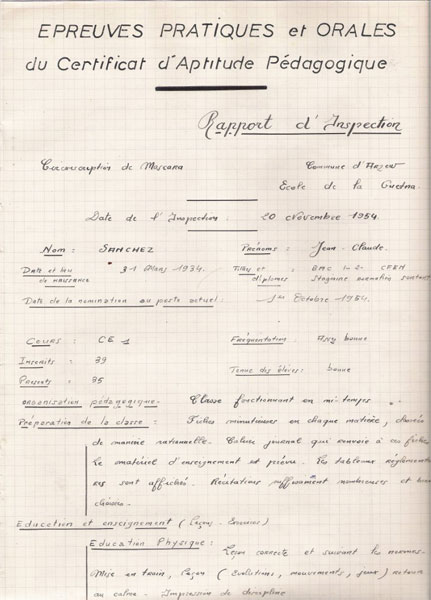 EPREUVES PRATIQUES et ORALES
du Certificat d'Aptitude Pédagogique
Rapport d'Inspection
Circonscription de Mascara Commune d'Arzew
Ecole de la Guetna
Date de l'Inspection : 20 novembre 1954
Nom : SANCHEZ Prénoms : Jean-Claude.
Date et lieu de naissance 31 Mars 1934. Titres et diplômes : CFEN Stagiaire
Date de la nomination au poste actuel : 1er Octobre 1954
Cours : CE 1 Fréquentation : Assez bonne
Inscrits : 39
Présents : 35 Tenue des élèves : bonne
Organisation pédagogique. Classe fonctionnant en mi-temps.
Préparation de la classe : Fiches minutieuses en chaque matière, choisies
de manière rationnelle. Cahier journal qui renvoie à ces fiches
Le matériel d'enseignement est prévu. Les tableaux réglementai
res sont affichés. Récitations suffisamment nombreuses et bien
choisies.
Education et enseignement (Leçons - Exercices)
Education Physique : Leçon correcte et suivant les normes.
Mise en train, leçon (Evolutions, mouvements, jeux) retour
au calme. Impression de discipline